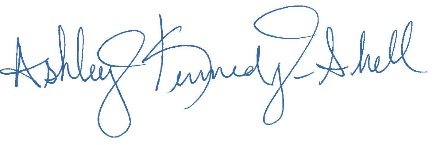 Ashley Kennedy-Shell